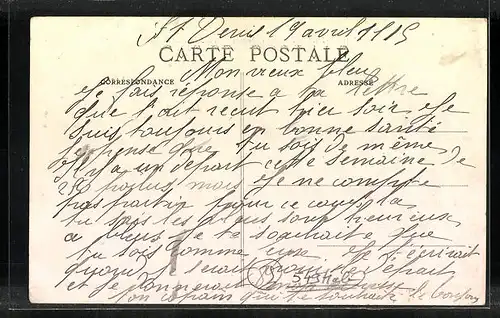 St Denis 19 avril 1915
CARTE POSTALE
Mon vieux bleu
CORRESPONDANCE ADRESSE
Je fais réponse a ta lettre
que j'ai recut hier soir Je
suis toujours en bonne santé
je pense que tu sois de même
Il y a un depart cette semaine de
250 poilus mais je ne compte
pas partir pour ce coup la
tu sais les sont heureux
a je te souhaite que
tu sois comme eux Je t'écrirait
quand je serait depart
et je donnerait
ton copain qui te souhaite le bonjour